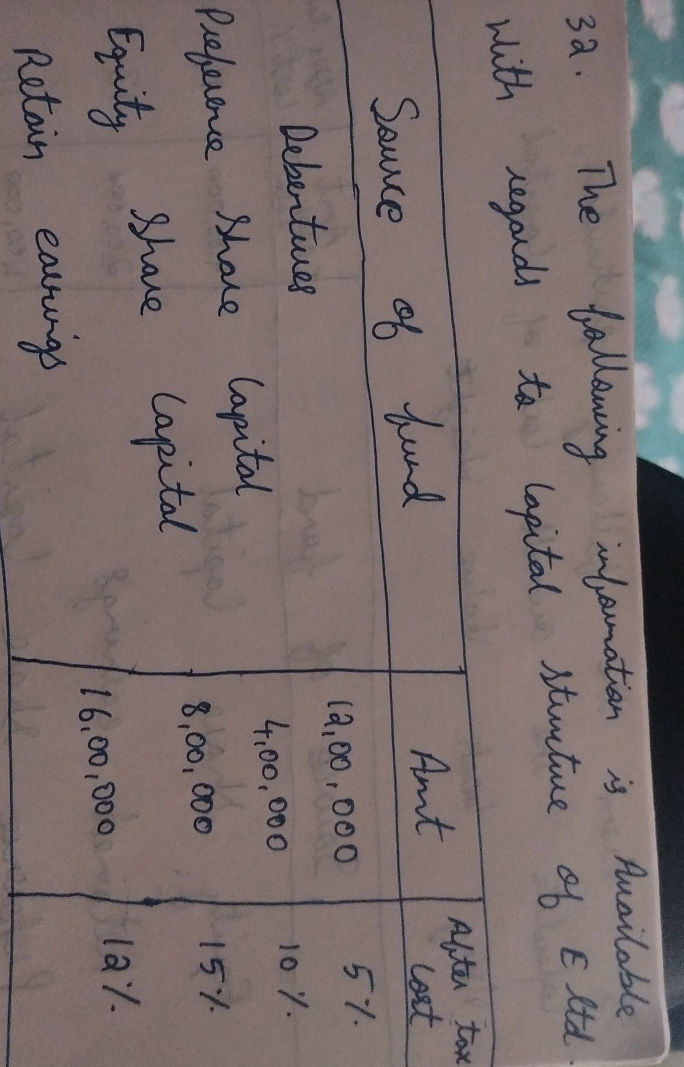 32. The following information is Available
with regards to Capital structure of E ltd.
Source of fund Amt After tax cost
Debentures 12,00,000 5%
Preference Share Capital 4,00,000 10%
Equity Share Capital 8,00,000 15%
Retain earnings 16,00,000 12%